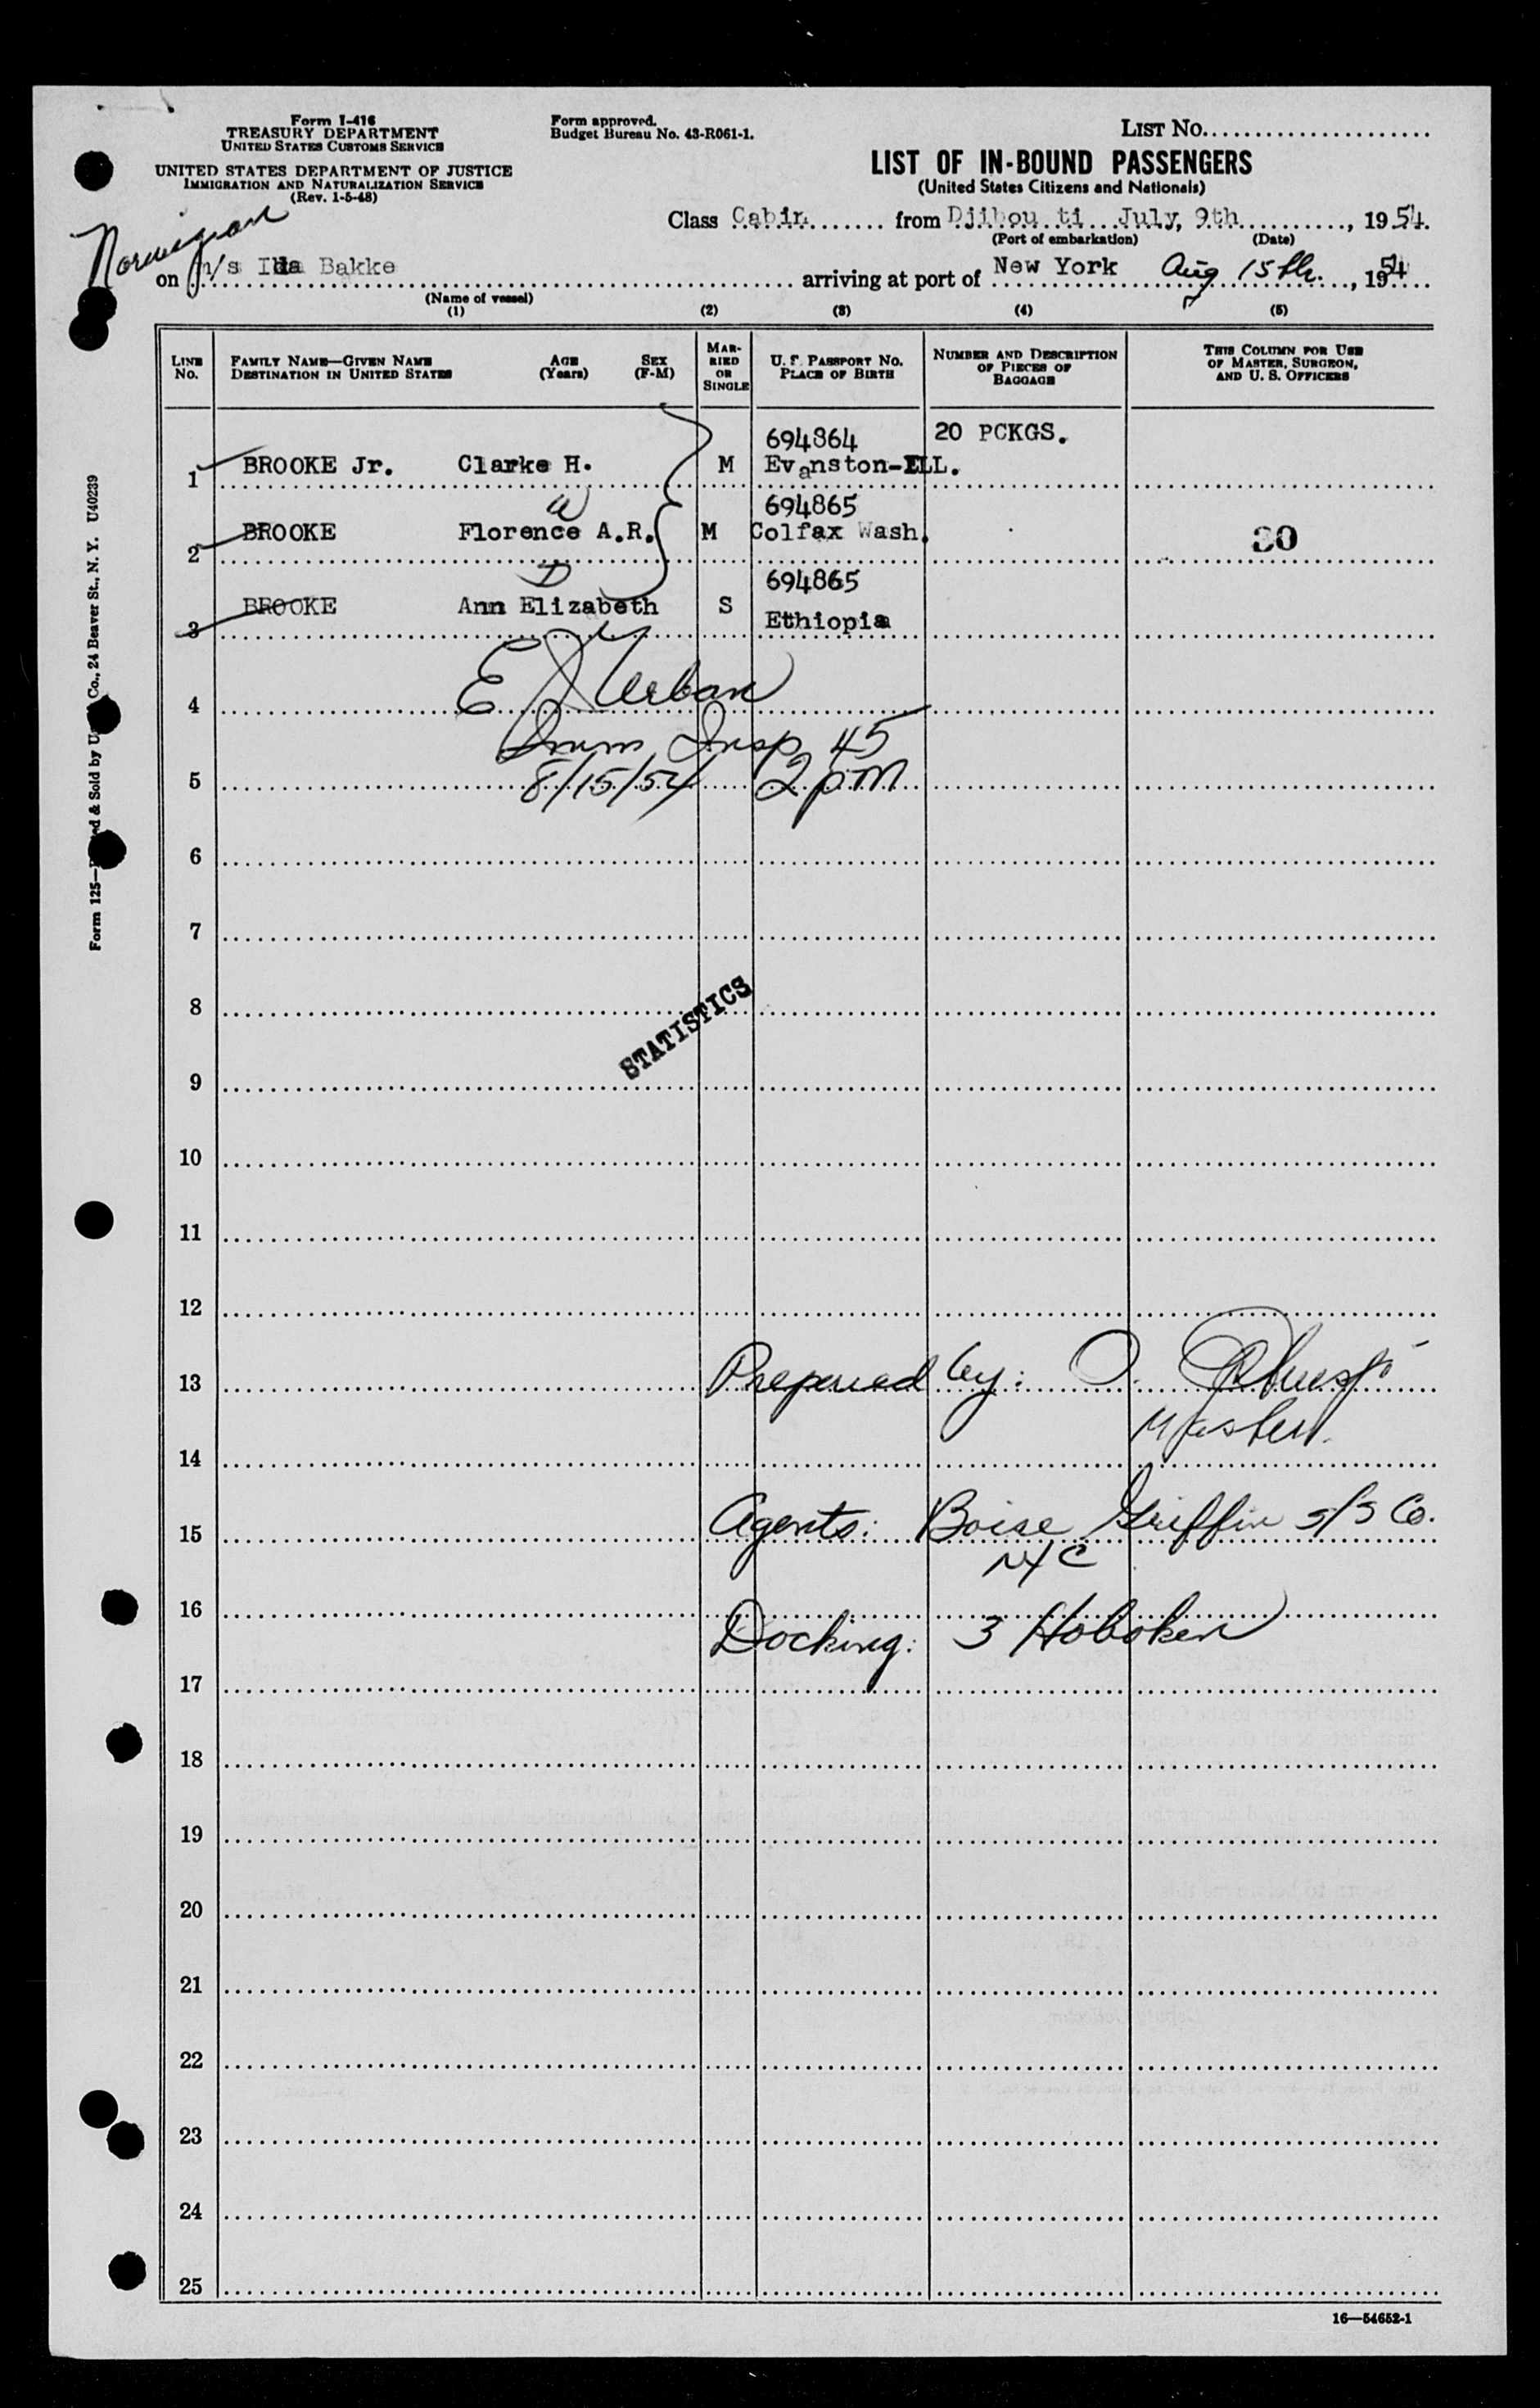 Form I-416
TREASURY DEPARTMENT
UNITED STATES CUSTOMS SERVICE
UNITED STATES DEPARTMENT OF JUSTICE
IMMIGRATION AND NATURALIZATION SERVICE
(Rev. 1-5-48)
Form approved.
Budget Bureau No. 43-R061-1.
LIST NO.
LIST OF IN-BOUND PASSENGERS
(United States Citizens and Nationals)
Class Cabin from Djibou ti July, 9th, 1954.
(Port of embarkation) (Date)
Norwegian
on m/s Ida Bakke arriving at port of New York Aug 15th., 1954
(Name of vessel)
(1) (2) (3) (4) (5)
LINE No. FAMILY NAME—GIVEN NAME DESTINATION IN UNITED STATES AGE (Years) SEX (F-M) MARRIED OR SINGLE U. S. PASSPORT NO. PLACE OF BIRTH NUMBER AND DESCRIPTION OF PIECES OF BAGGAGE THIS COLUMN FOR USE OF MASTER, SURGEON, AND U. S. OFFICERS
694864 20 PCKGS.
1 BROOKE Jr. Clarke H. M Evanston-ILL.
W 694865
2 BROOKE Florence A.R. M Colfax Wash. 30
D 694865
3 BROOKE Ann Elizabeth S Ethiopia
4 Urban
Imm Insp 45
5 8/15/54 2 pm
6
7
8
STATISTICS
9
10
11
12
13 Prepered by: O.
Master.
14
15 Agents: Boise Griffin S/S Co.
NYC
16
Docking: 3 Hoboken
17
18
19
20
21
22
23
24
25
16—54652-1
Form 125— & Sold by Co., 24 Beaver St., N. Y. U40239